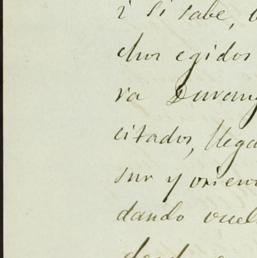 i si sabe,
chos egidos
ra Durang
citados, llega
sur y orien
dando vuel
desde